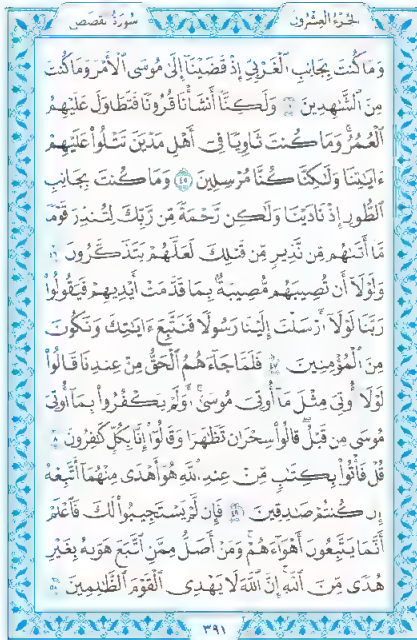 الجزء العشرون سورة القصص
وَمَا كُنتَ بِجَانِبِ ٱلْغَرْبِىِّ إِذْ قَضَيْنَآ إِلَىٰ مُوسَى ٱلْأَمْرَ وَمَا كُنتَ
مِنَ ٱلشَّٰهِدِينَ ٤٤ وَلَٰكِنَّآ أَنشَأْنَا قُرُونًا فَتَطَاوَلَ عَلَيْهِمُ
ٱلْعُمُرُ ۚ وَمَا كُنتَ ثَاوِيًا فِىٓ أَهْلِ مَدْيَنَ تَتْلُوا۟ عَلَيْهِمْ
ءَايَٰتِنَا وَلَٰكِنَّا كُنَّا مُرْسِلِينَ ٤٥ وَمَا كُنتَ بِجَانِبِ
ٱلطُّورِ إِذْ نَادَيْنَا وَلَٰكِن رَّحْمَةً مِّن رَّبِّكَ لِتُنذِرَ قَوْمًا
مَّآ أَتَىٰهُم مِّن نَّذِيرٍ مِّن قَبْلِكَ لَعَلَّهُمْ يَتَذَكَّرُونَ ٤٦
وَلَوْلَآ أَن تُصِيبَهُم مُّصِيبَةٌۢ بِمَا قَدَّمَتْ أَيْدِيهِمْ فَيَقُولُوا۟
رَبَّنَا لَوْلَآ أَرْسَلْتَ إِلَيْنَا رَسُولًا فَنَتَّبِعَ ءَايَٰتِكَ وَنَكُونَ
مِنَ ٱلْمُؤْمِنِينَ ٤٧ فَلَمَّا جَآءَهُمُ ٱلْحَقُّ مِنْ عِندِنَا قَالُوا۟
لَوْلَآ أُوتِىَ مِثْلَ مَآ أُوتِىَ مُوسَىٰٓ ۚ أَوَلَمْ يَكْفُرُوا۟ بِمَآ أُوتِىَ
مُوسَىٰ مِن قَبْلُ ۖ قَالُوا۟ سِحْرَانِ تَظَٰهَرَا وَقَالُوٓا۟ إِنَّا بِكُلٍّ كَٰفِرُونَ ٤٨
قُلْ فَأْتُوا۟ بِكِتَٰبٍ مِّنْ عِندِ ٱللَّهِ هُوَ أَهْدَىٰ مِنْهُمَآ أَتَّبِعْهُ
إِن كُنتُمْ صَٰدِقِينَ ٤٩ فَإِن لَّمْ يَسْتَجِيبُوا۟ لَكَ فَٱعْلَمْ
أَنَّمَا يَتَّبِعُونَ أَهْوَآءَهُمْ ۚ وَمَنْ أَضَلُّ مِمَّنِ ٱتَّبَعَ هَوَىٰهُ بِغَيْرِ
هُدًى مِّنَ ٱللَّهِ ۚ إِنَّ ٱللَّهَ لَا يَهْدِى ٱلْقَوْمَ ٱلظَّٰلِمِينَ ٥٠
٣٩١